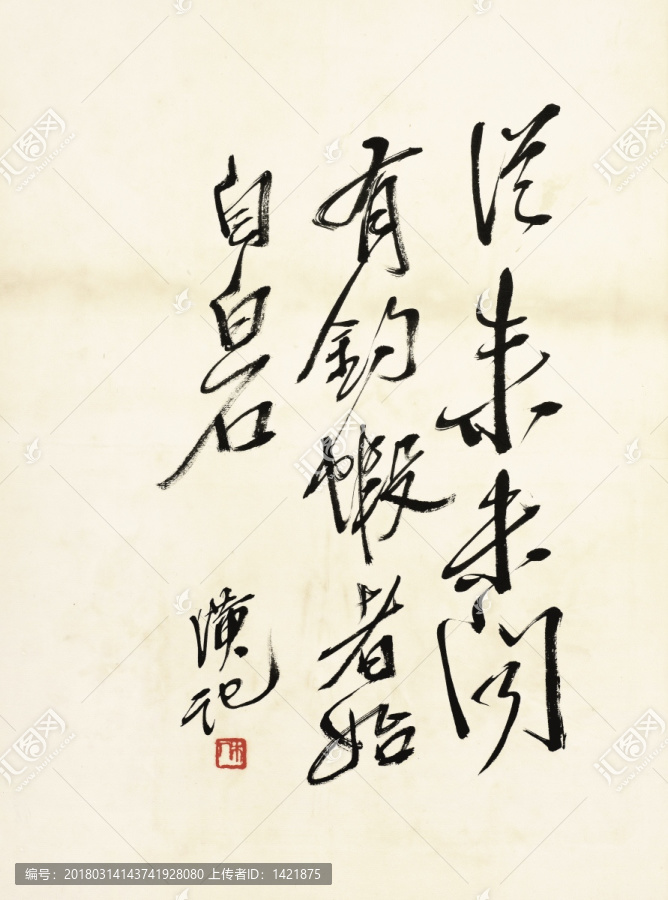 從來未聞
有釣蝦者始
自白石
璜記
汇图网
编号：20180314143741928080 上传者ID：1421875